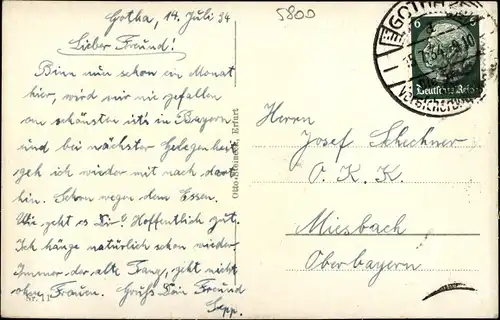 Gotha, 14. Juli 34
5800
Lieber Freund!
Binn nun schon ein Monat
hier, wird mir nie gefallen
am schönsten ist's in Bayern
und bei nächster Gelegenheit
geh ich wieder mit nach dort
hin. Schon wegen dem Essen.
Wie geht es Dir? Hoffentlich gut.
Ich hänge natürlich schon wieder.
Immer der alte Tanz, geht nicht
ohne Frauen. Gruß Dein Freund
Sepp.
Nr. 11
Otto Stainack, Erfurt
GOTHA
6
Deutsches Reich
Herrn
Josef Schechner
O. K. K.
Miesbach
Oberbayern